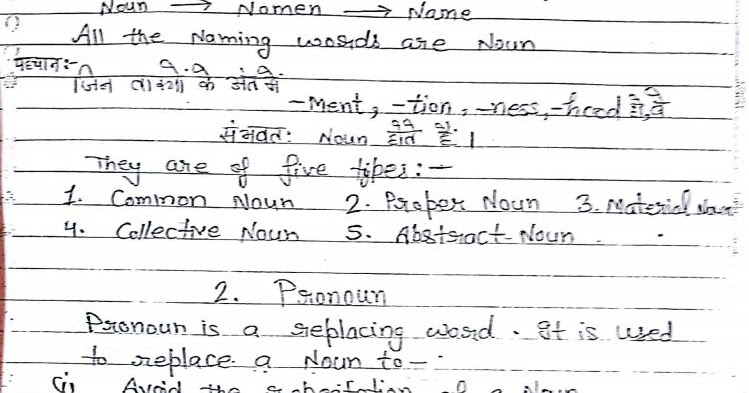 Noun → Nomen → Name
All the Naming words are Noun
पहचान:-
जिन वाक्यों के अंत में
-Ment, -tion, -ness, -hood हो, वे
संभवतः Noun होते हैं।
They are of five types:-
1. Common Noun 2. Proper Noun 3. Material Noun
4. Collective Noun 5. Abstract Noun
2. Pronoun
Pronoun is a replacing word. It is used
to replace a Noun to-:
(i) Avoid the of a Noun